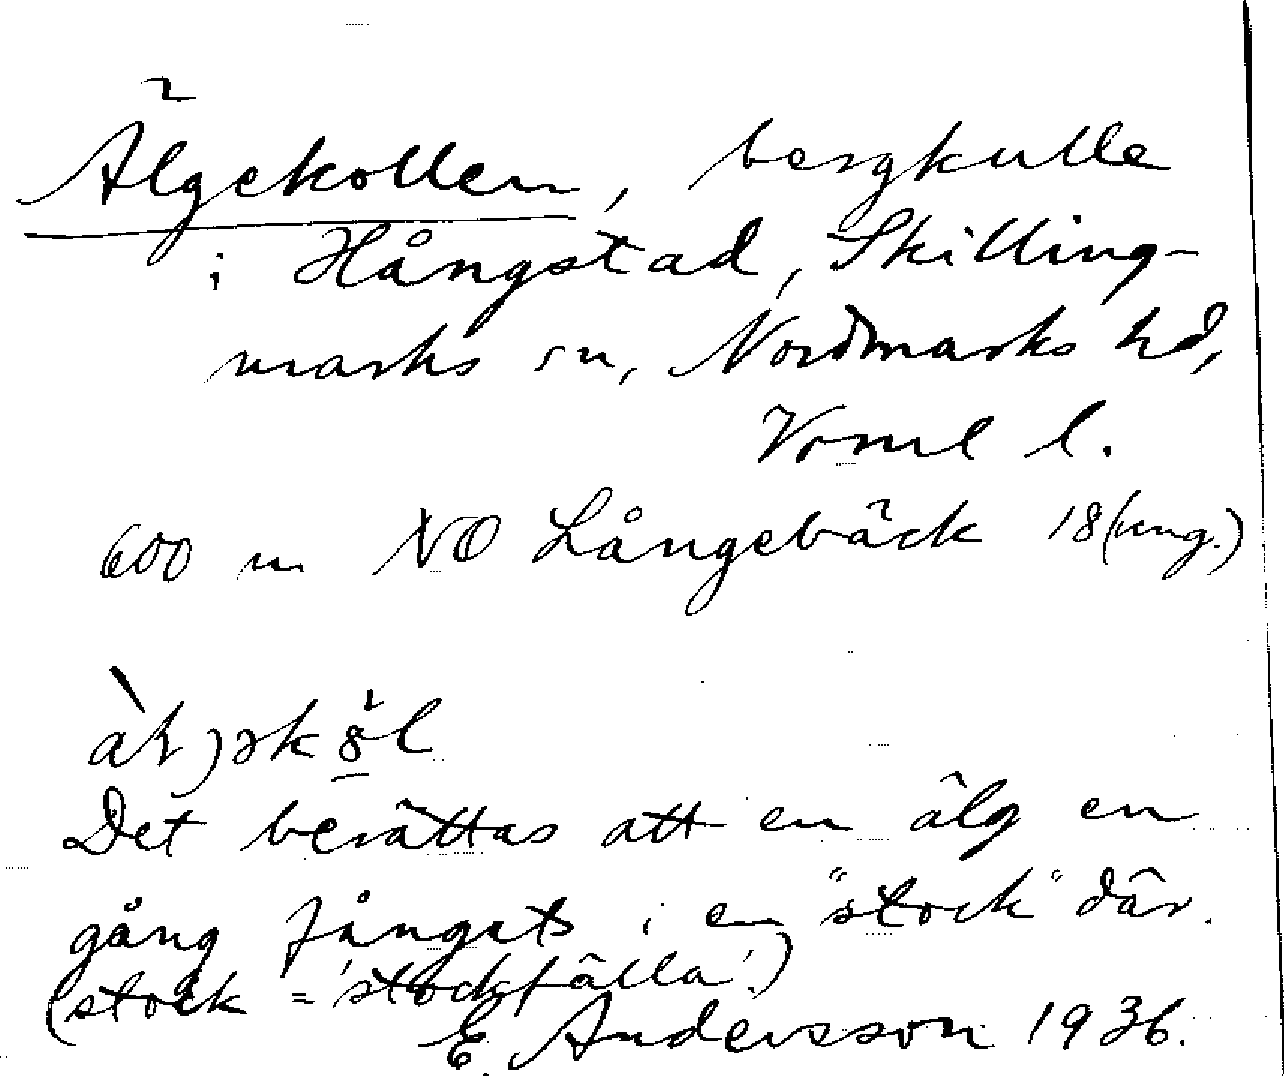 Älgekollen, bergkulle
i Hångstad, Skilling-
marks sn, Nordmarks hd,
Vrml l.
600 m NO Långebäck 18 (ung.)
Det berättas att en älg en
gång fångats i en "stock" där.
(stock = 'stockfälla'.)
E. Andersson 1936.